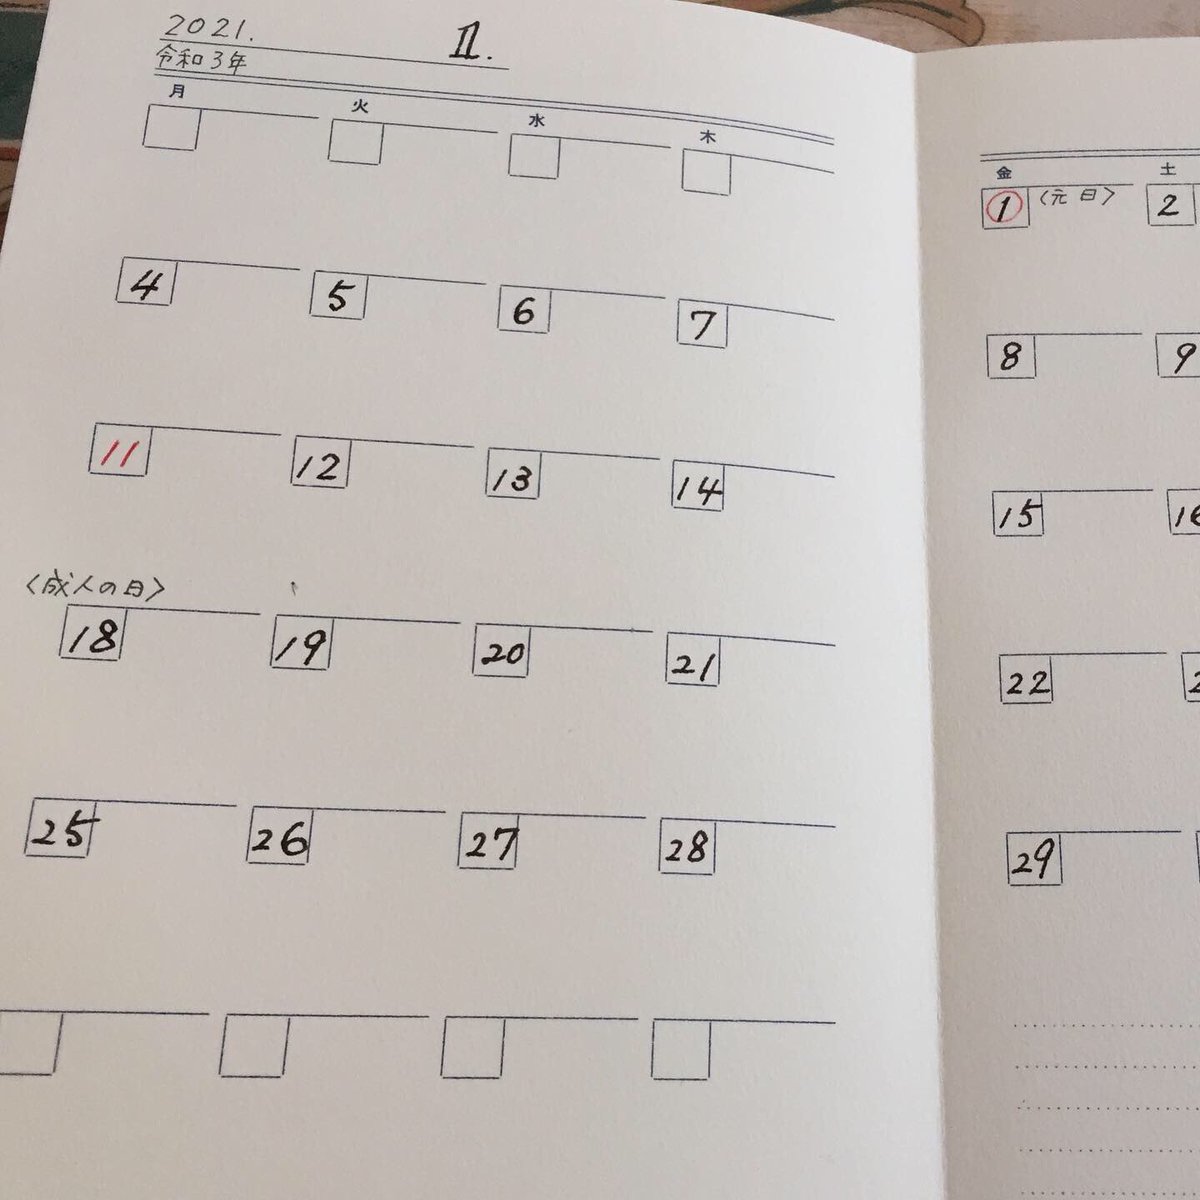 2021. 1.
令和3年
月 火 水 木 金 土
1 〈元日〉 2
4 5 6 7 8 9
11 12 13 14 15 16
〈成人の日〉
18 19 20 21 22
25 26 27 28 29